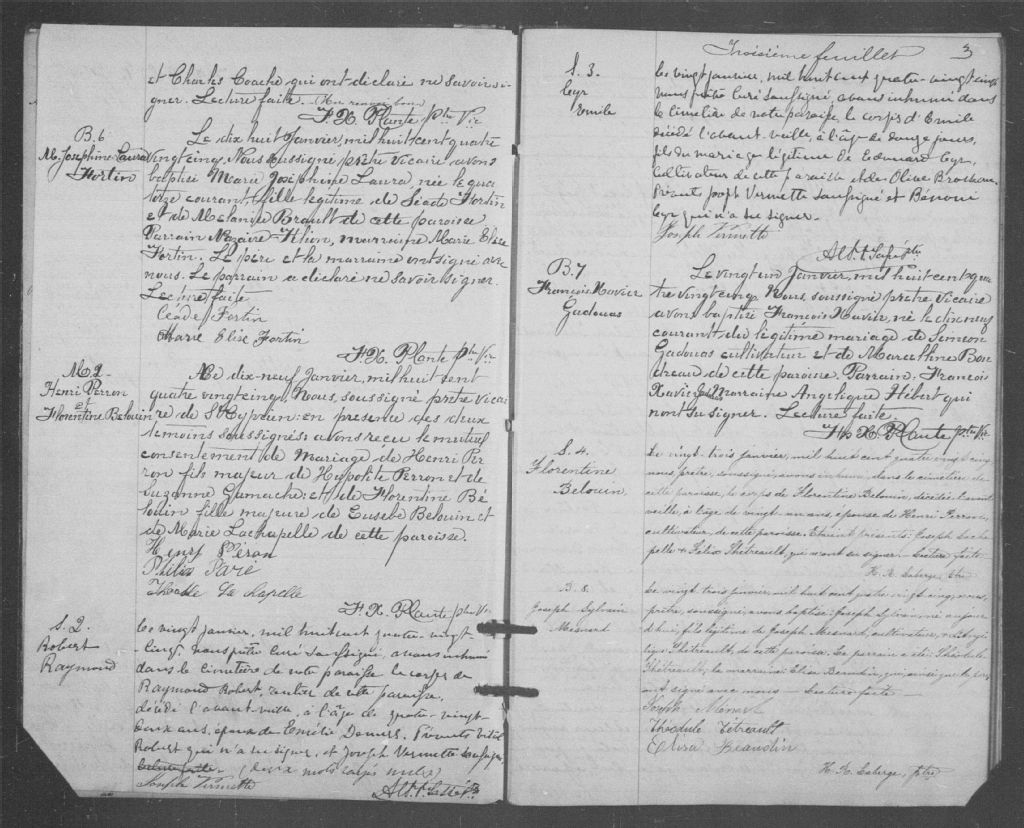 et Charles Coache qui ont déclaré ne savoir si-
gner. Lecture faite.
F. X. Plante Ptre Vic
B. 6
M. Josephine Laura
Fortin
Le dix huit Janvier, mil huit cent quatre
vingt cinq, Nous soussigné prêtre Vicaire, avons
baptisé Marie Josephine Laura, née le qua
torze courant, fille légitime de Fortin
et de Melanie Brault de cette paroisse
Parrain Nazaire marraine Marie Elise
Fortin. Le père et la marraine ont signé avec
nous. Le parrain a déclaré ne savoir signer.
Lecture faite
Fortin
Marie Elise Fortin
F. X. Plante Ptre Vic
M. 2
Henri Perron
et
Florentine Belouin
Le dix-neuf Janvier, mil huit cent
quatre vingt cinq, Nous, soussigné prêtre Vicai
re de St Cyprien: en presence des deux
temoins soussignés: avons recu le mutuel
consentement de Mariage de Henri Per
ron fils majeur de Hypolite Perron et de
Suzanne Gamache: et de Florentine Bé
louin fille majeure de Eusebe Belouin et
de Marie Lachapelle de cette paroisse.
Henry Péron
Félix Paré
La Chapelle
F. X. Plante ptre Vic
S. 2.
Robert
Raymond
Le vingt Janvier, mil huit cent quatre vingt-
cinq, nous prêtre curé soussigné, avons inhumé
dans le cimetière de cette paroisse le corps de
Raymond Robert, rentier de cette paroisse,
décédé l'avant-veille, à l'âge de quatre-vingt-
deux ans, époux de Emélie Demers. Présents
Robert qui n'a su signer, et Joseph Vermette soussigné
(deux mots rayés nuls)
Joseph Vermette
Troisième feuillet
3
S. 3.
Cyr
Emile
Le vingt janvier, mil huit cent quatre-vingt cinq
nous prêtre curé soussigné, avons inhumé dans
le cimetière de cette paroisse, le corps d'Emile
décédé l'avant-veille, à l'âge de douze jours,
fils du mariage légitime de Edouard Cyr,
cultivateur de cette paroisse et de Olive Brosseau.
Présents Joseph Vermette soussigné et Bénoni
Cyr qui n'a su signer.
Joseph Vermette
B. 7
François Xavier
Gadouas
Le vingt un Janvier, mil huit cent qua
tre vingt cinq, Nous, soussigné prêtre Vicaire
avons baptisé François Xavier, né le dix neuf
courant du légitime mariage de Simeon
Gadouas cultivateur et de Marcelline Bou
dreau de cette paroisse. Parrain, François
Xavier marraine Angelique Hébert qui
n'ont su signer. Lecture faite
F. X. Plante ptre Vic
S. 4.
Florentine
Belouin
Le vingt-trois janvier, mil huit cent quatre vingt cinq
nous prêtre, soussigné avons inhumé, dans le cimetière de
cette paroisse, le corps de Florentine Belouin, décédée l'avant
veille, à l'âge de vingt-un ans, épouse de Henri Perron,
cultivateur de cette paroisse. Etaient présents: Joseph Lacha
pelle & Félix Thétreault, qui n'ont su signer — Lecture faite
H. R. Laberge, Ptre
B. 8.
Joseph Sylvain
Mesnard
Le vingt trois janvier, mil huit cent quatre vingt cinq, nous,
prêtre, soussigné, avons baptisé Joseph Sylvain, né aujour
d'hui, fils légitime de Joseph Mesnard, cultivateur, & d'Angé
lique Thétreault, de cette paroisse. Le parrain a été Théodule
Thétreault, la marraine Elisa Beaudin, qui, ainsi que le père
ont signé avec nous — Lecture faite —
Joseph Menard
Théodule Tétreault
Elisa Beaudin
H. R. Laberge, ptre